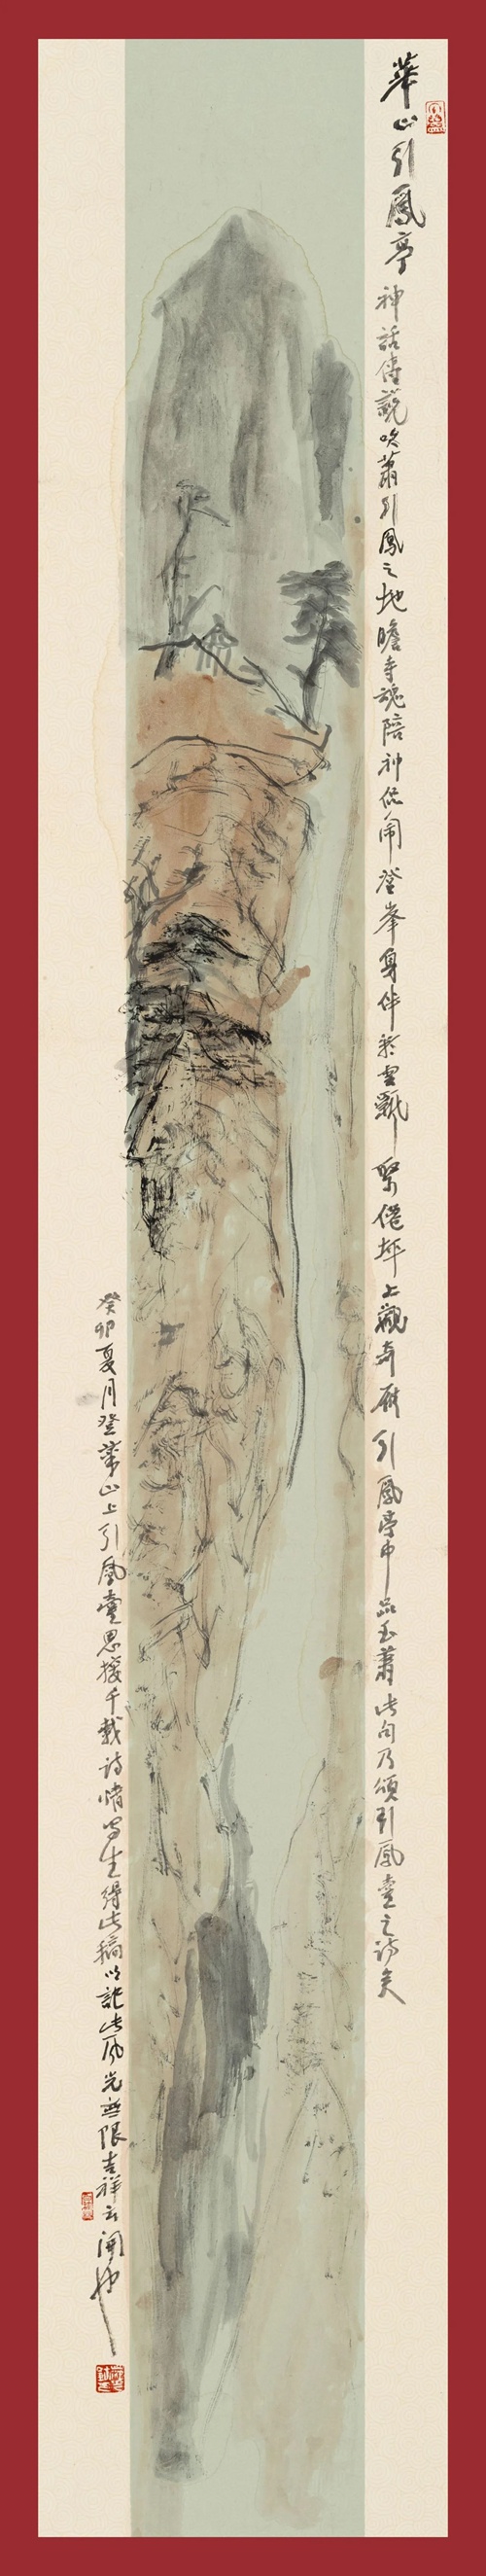 華山引鳳亭 神話傳說吹蕭引鳳之地瞻寺魂陪神侃闹登峯身伴彩雲飄 緊倦坪上觀奇雁引鳳亭中品玉蕭此句乃頌引鳳臺之詩矣
癸卯夏月登華山上引鳳臺思接千載詩情寫生得此稿以記此風光無限吉祥云開也